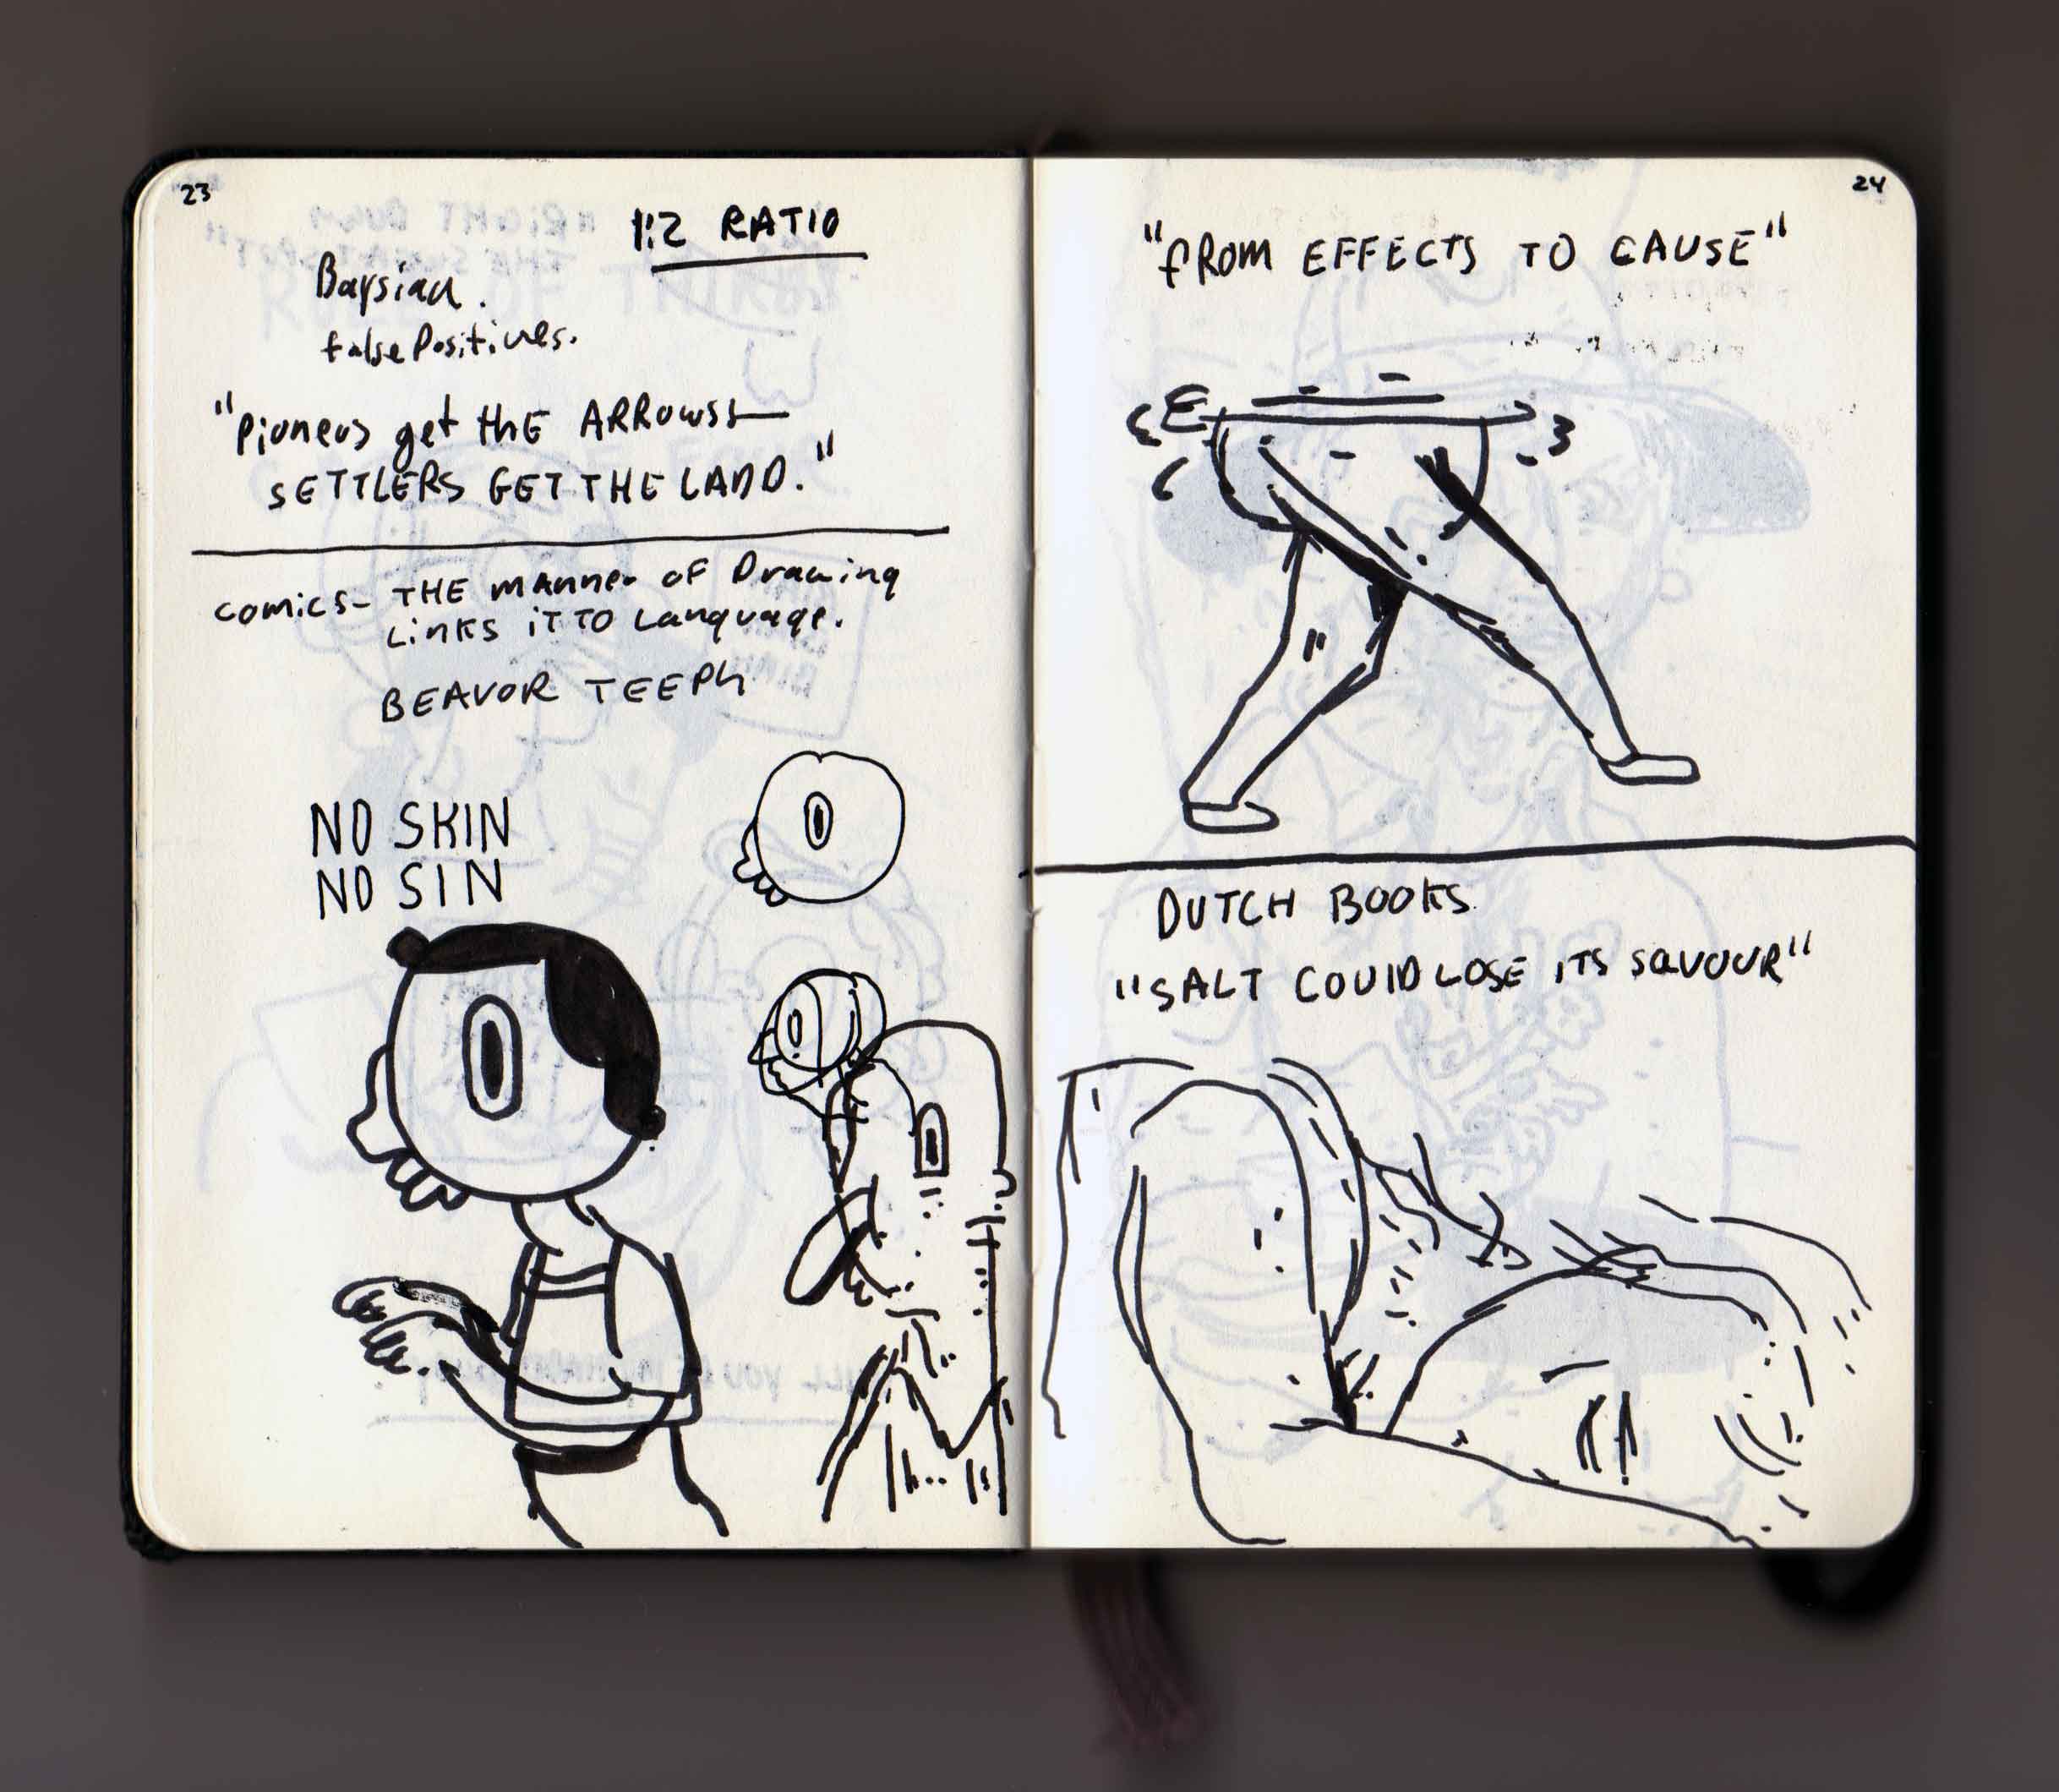 23
1:2 RATIO
Baysian.
false Positives.
"Pioneers get thE ARROWS
SETTLERS GET THE LAND."
comics- THE manner oF Drawing
LinKS iT TO Language.
BEAVOR TEEPh
NO SKIN
NO SIN
24
"fROM EFFECTS TO CAUSE"
DUTCH BOOKS.
"SALT COULD LOSE ITS SAVOUR"